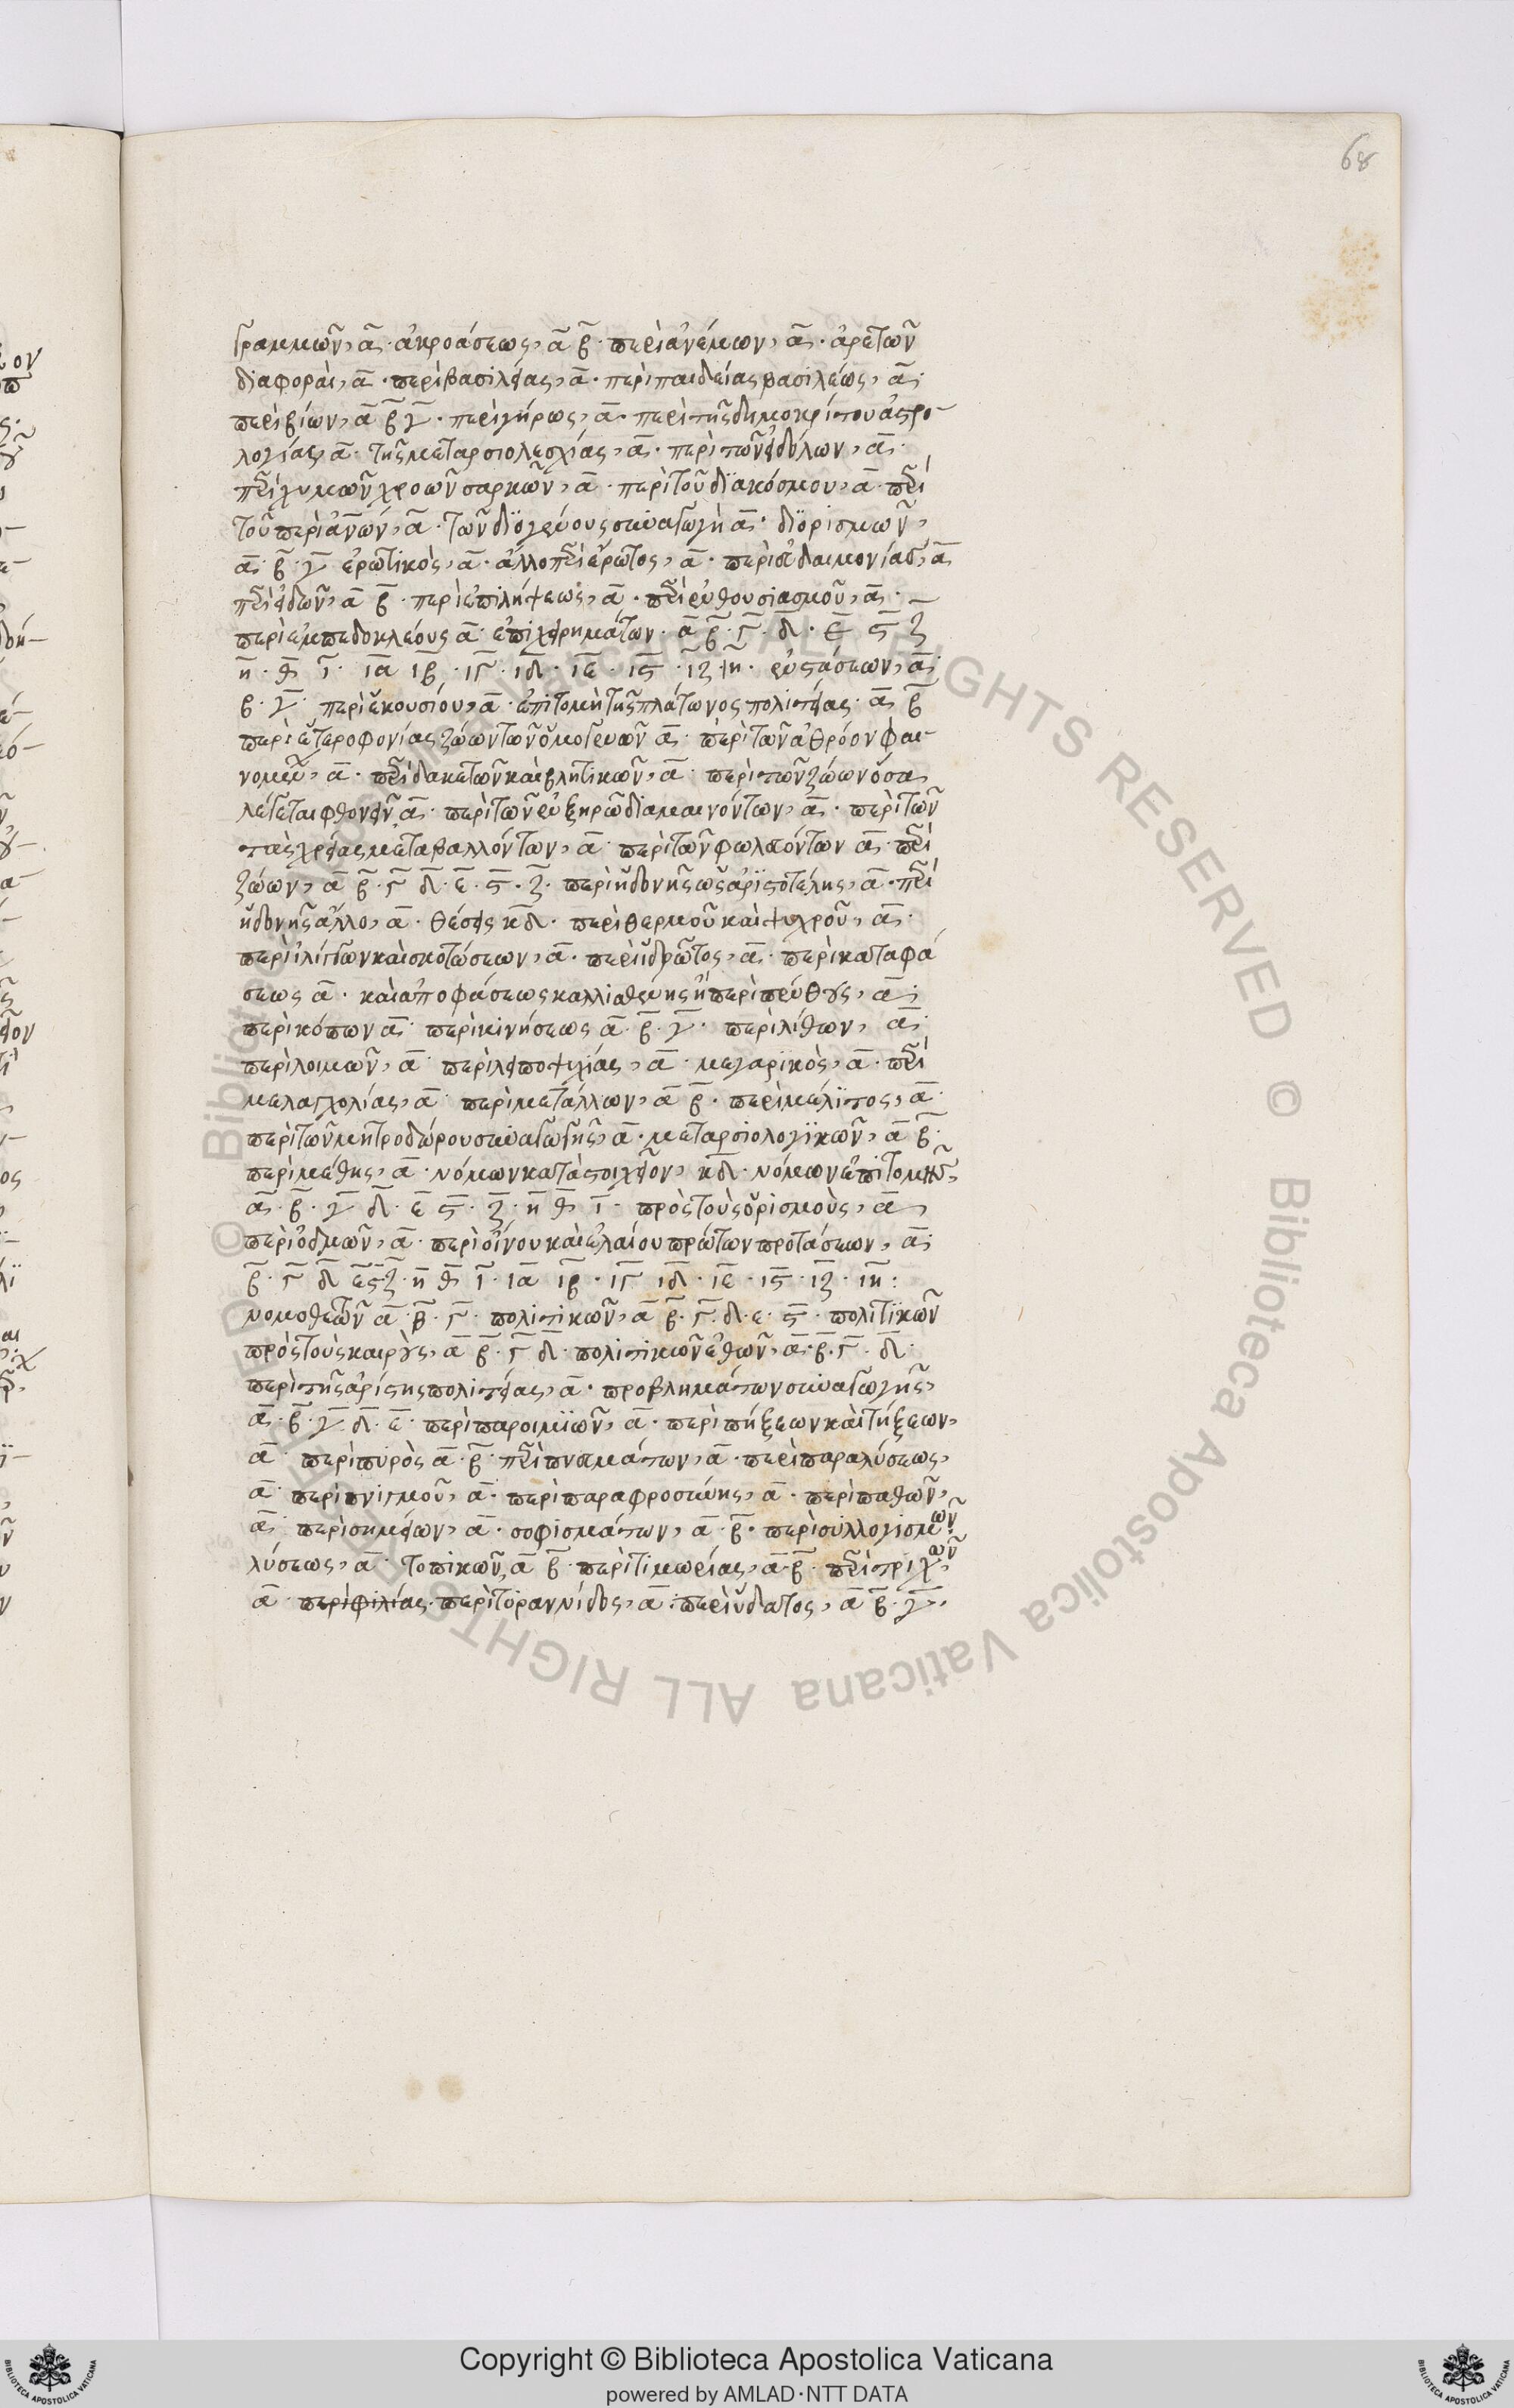 68
γραμμῶν, α̅· ἀκροάσεως, α̅ β̅· περὶ ἀνέμων, α̅· ἀρετῶν
διαφοραὶ, α̅· περὶ βασιλείας, α̅· περὶ παιδείας βασιλέως, α̅·
περὶ βίων, α̅ β̅ γ̅· περὶ γήρως, α̅· περὶ τῆς δημοκρίτου ἀστρο-
λογίας, α̅· τῆς μεταρσιολεσχίας, α̅· περὶ τῶν εἰδώλων, α̅·
περὶ χυμῶν χροῶν σαρκῶν, α̅· περὶ τοῦ διακόσμου, α̅· περὶ
τοῦ περὶ ἀν̅ων, α̅· τῶν διογένους συναγωγὴ α̅· διορισμῶν,
α̅· β̅· γ̅· ἐρωτικὸς, α̅· ἄλλο περὶ ἔρωτος, α̅· περὶ εὐδαιμονίας, α̅
περὶ εἰδῶν, α̅ β̅· περὶ ἐπιλήψεως, α̅· περὶ ἐνθουσιασμοῦ, α̅·
περὶ ἐμπεδοκλέους α̅· ἐπιχειρημάτων· α̅ β̅· γ̅· δ̅· ε̅ ϛ̅ ζ̅
η̅· θ̅· ι̅· ια̅ ιβ̅· ιγ̅· ιδ̅· ιε̅· ιϛ̅· ιζ̅ ιη̅· ἐνστάσεων, α̅·
β̅· γ̅· περὶ ἑκουσίου, α̅· ἐπιτομὴ τῆς πλάτωνος πολιτείας· α̅ β̅
περὶ ἑτεροφονίας ζώων τῶν ὁμογενῶν α̅· περὶ τῶν ἀθρόον φαι-
νομέν, α̅· περὶ δακετῶν καὶ βλητικῶν, α̅· περὶ τῶν ζώων ὅσα
λέγεται φθονεῖν, α̅· περὶ τῶν ἐν ξηρῶ διαμαινόντων, α̅· περὶ τῶν
τὰς χρείας μεταβαλλόντων, α̅· περὶ τῶν φωλευόντων α̅· περὶ
ζώων, α̅ β̅· γ̅ δ̅· ε̅· ϛ̅· ζ̅· περὶ ἡδονῆς ὡς ἀριστοτέλης, α̅· περὶ
ἡδονῆς ἄλλο, α̅· θέσεις κδ̅· περὶ θερμοῦ καὶ ψυχροῦ, α̅·
περὶ ἰλίγγων καὶ σκοτώσεων, α̅· περὶ ἱδρῶτος, α̅· περὶ καταφά
σεως α̅· καὶ ἀποφάσεως καλλισθένης ἢ περὶ πένθους, α̅·
περὶ κόπων α̅· περὶ κινήσεως α̅· β̅· γ̅· περὶ λίθων, α̅·
περὶ λοιμῶν, α̅· περὶ λειποψυχίας, α̅· μεγαρικὸς, α̅· περὶ
μελαγχολίας, α̅· περὶ μετάλλων, α̅ β̅· περὶ μέλιτος, α̅·
περὶ τῶν μητροδώρου συναγωγῆς, α̅· μεταρσιολογικῶν, α̅ β̅·
περὶ μέθης, α̅· νόμων κατὰ στοιχεῖον, κδ̅· νόμων ἐπιτομῆς,
α̅· β̅· γ̅ δ̅· ε̅ ϛ̅· ζ̅· η̅ θ̅ ι̅· πρὸς τοὺς ὁρισμοὺς, α̅,
περὶ ὀδμῶν, α̅· περὶ οἴνου καὶ ἐλαίου πρώτων προτάσεων, α̅·
β̅· γ̅ δ̅ ε̅ϛ̅ζ̅· η̅ θ̅· ι̅· ια̅ ιβ̅· ιγ̅ ιδ̅· ιε̅· ιϛ̅· ιζ̅· ιη̅:
νομοθετῶν α̅· β̅· γ̅· πολιτικῶν, α̅ β̅· γ̅· δ· ε· ϛ̅· πολιτικῶν
πρὸς τοὺς καιροὺς, α̅ β̅· γ̅ δ̅· πολιτικῶν ἐθῶν, α̅· β̅· γ̅· δ̅·
περὶ τῆς ἀρίστης πολιτείας, α̅· προβλημάτων συναγωγῆς,
α̅· β̅· γ̅· δ̅· ε̅· περὶ παροιμιῶν, α̅· περὶ πήξεων καὶ τήξεων,
α̅· περὶ πυρὸς α̅· β̅· περὶ πνευμάτων, α̅· περὶ παραλύσεως,
α̅· περὶ πνιγμοῦ, α̅· περὶ παραφροσύνης, α̅· περὶ παθῶν,
α̅· περὶ σημείων, α̅· σοφισμάτων, α̅· β̅· περὶ συλλογισμῶν
λύσεως, α̅· τοπικῶν, α̅ β̅· περὶ τιμωρίας, α̅· β̅· περὶ τριχῶν,
α̅· περὶ φιλίας· περὶ τυραννίδος, α̅· περὶ ὕδατος, α̅ β̅· γ̅·
© Biblioteca Apostolica Vaticana ALL RIGHTS RESERVED
Copyright © Biblioteca Apostolica Vaticana
powered by AMLAD·NTT DATA